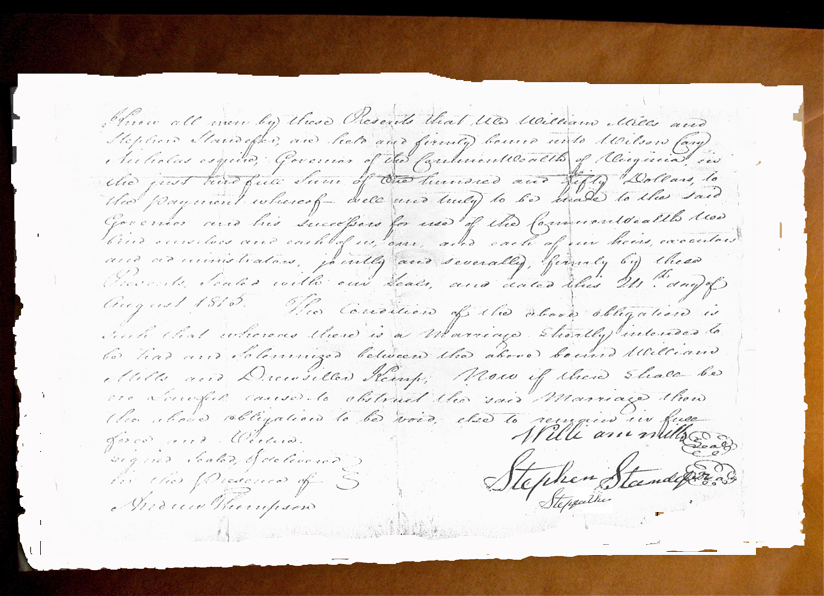 Know all men by these Presents that We William Mills and
Stephen Standefer, are held and firmly bound unto Wilson Cary
Nicholas esquire, Governor of the Commonwealth of Virginia, in
the just and full Sum of One hundred and fifty Dollars, to
the payment whereof well and truly to be made to the said
Governor and his successors for use of the Commonwealth We
bind ourselves and each of us, our, and each of our heirs, executors
and administrators, jointly and severally, firmly by these
Presents, Sealed with our Seals, and dated this 24th day of
August 1815. The Condition of the above obligation is
such that whereas there is a Marriage Shortly intended to
be had and Solemnized between the above bound William
Mills and Drewsiller Kemp; Now if there Shall be
no Lawful cause to obstruct the said Marriage then
the above obligation to be void, else to remain in full
force and Virtue.
William Mills Seal
Signed Sealed, & delivered
in the Presence of
Stephen Standefer Seal
Stepfather
Andrew Thompson